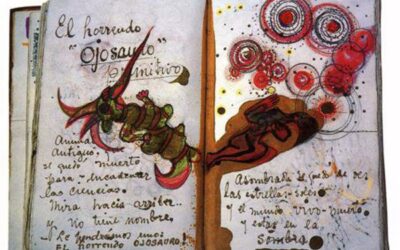 El horrendo
"OJOSAURO"
primitivo
Animal
Antiguo,
se quedó muerto
para encadenar
las ciencias.
Mira hacia arriba
Y no tiene nombre,
Le pondremos uno:
EL HORRENDO OJOSAURO!
Asombrada se quedó de ver
las estrellas-soles
y el mundo vivo-muerto
y estar en la
SOMBRA